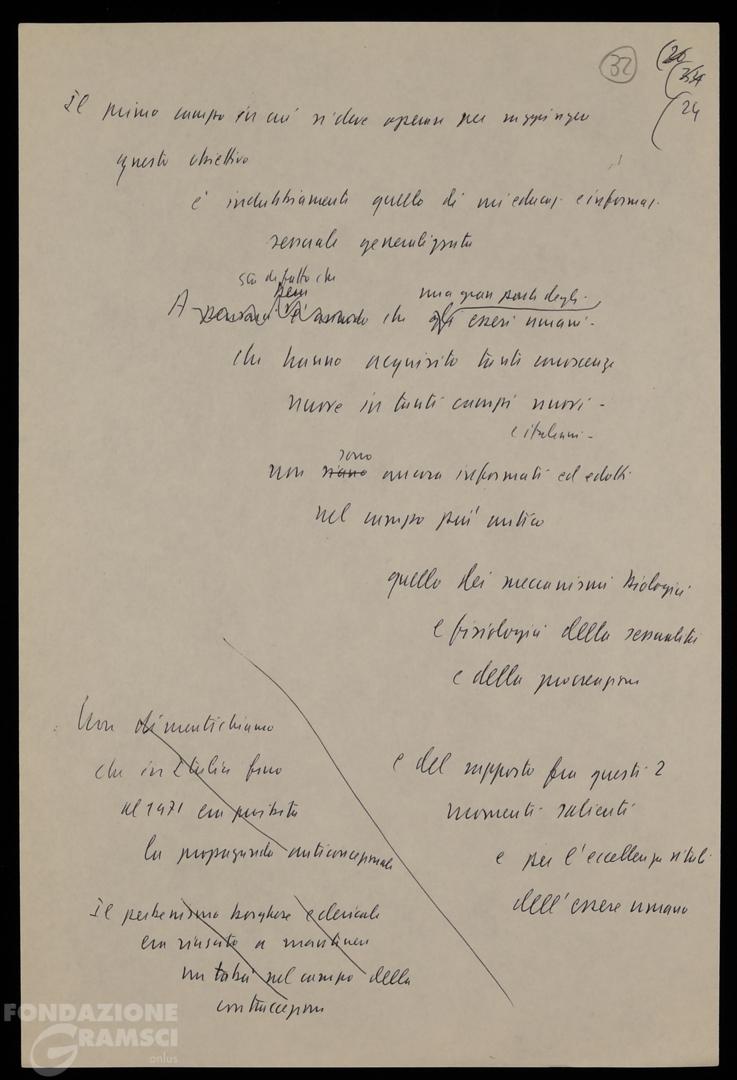 32
24
Il primo campo in cui si deve operare per raggiungere
questo obiettivo
è indubbiamente quello di un'educaz. e informaz.
sessuale generalizzata
sta di fatto che
A che una gran parte degli
gli esseri umani -
che hanno acquisito tante conoscenze
nuove in tanti campi nuovi -
e italiani -
sono
non siano ancora informati ed edotti
nel campo più antico
quello dei meccanismi biologici
e fisiologici della sessualità
e della procreazione
e del rapporto fra questi 2
momenti salienti
e per l'eccellenza vitali
dell'essere umano
Non dimentichiamo
che in Italia fino
al 1971 era proibita
la propaganda anticoncezionale
Il perbenismo borghese e clericale
era riuscito a mantenere
un tabù nel campo della
contraccezione
FONDAZIONE
GRAMSCI
onlus